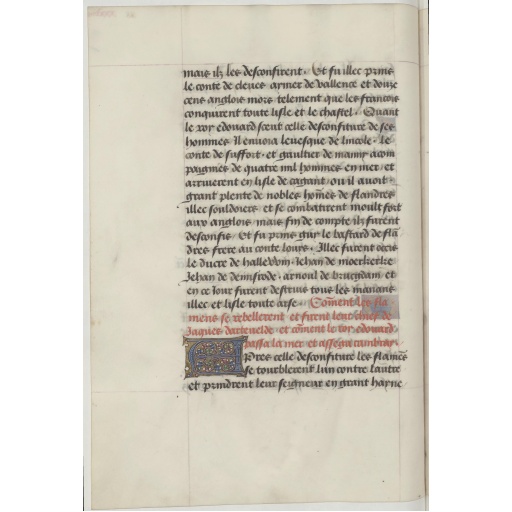 mais ilz les desconfirent. Et fu illec prins
le conte de cleues aimer de vallence et douze
cens anglois mors telement que les francois
conquirent toute lisle et le chastel. Quant
le roy edouard sceut celle desconfiture de ses
hommes Il enuoia leuesque de lincole. le
conte de suffort. et gaultier de manny acom
paigniés de quatre mil hommes en mer. et
arriuerent en lisle de cagant. ou il auoit
grant plente de nobles hommes de flandres
illec souldoiers. et se combatirent moult fort
aux anglois mais fin de compte ilz furent
desconfis. Et fu prins guy le bastard de flā
dres frere au conte loys. Illec furent occis
le ducre de hallewyn. Jehan de moerkerke
Jehan de
arnoul de brucgdam et
en ce Jour furent destruis tous les manans
illec et lisle toute arse. Cōment les fla
mens se rebellerent et firent leur chief de
Jaques darteuelde. et cōment le roy edouard
passa la mer et assega cambray.
Apres celle desconfiture les flamēs
se tourblerent lun contre lautre
et prindrent leur seigneur en grant hayne